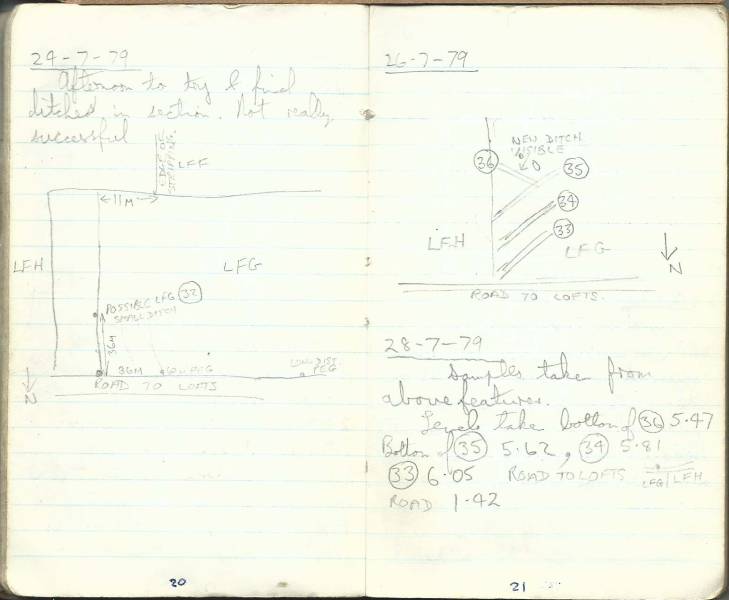 24-7-79
Afternoon to try & find
ditches in section. Not really
successful
EDGE OF
STRIPPING
LFF
11M
LFH
LFG
POSSIBLE LFG 32
SMALL DITCH
36M
36M
PEG
LONG DIST
PEG
ROAD TO LOFTS
N
20
26-7-79
NEW DITCH
VISIBLE
36
35
34
33
LFH
LFG
N
ROAD TO LOFTS.
28-7-79
Samples taken from
above features.
Levels taken bottom of 36 5.47
Bottom of 35 5.62, 34 5.81
33 6.05 ROAD TO LOFTS LFG/LFH
ROAD 1.42
21